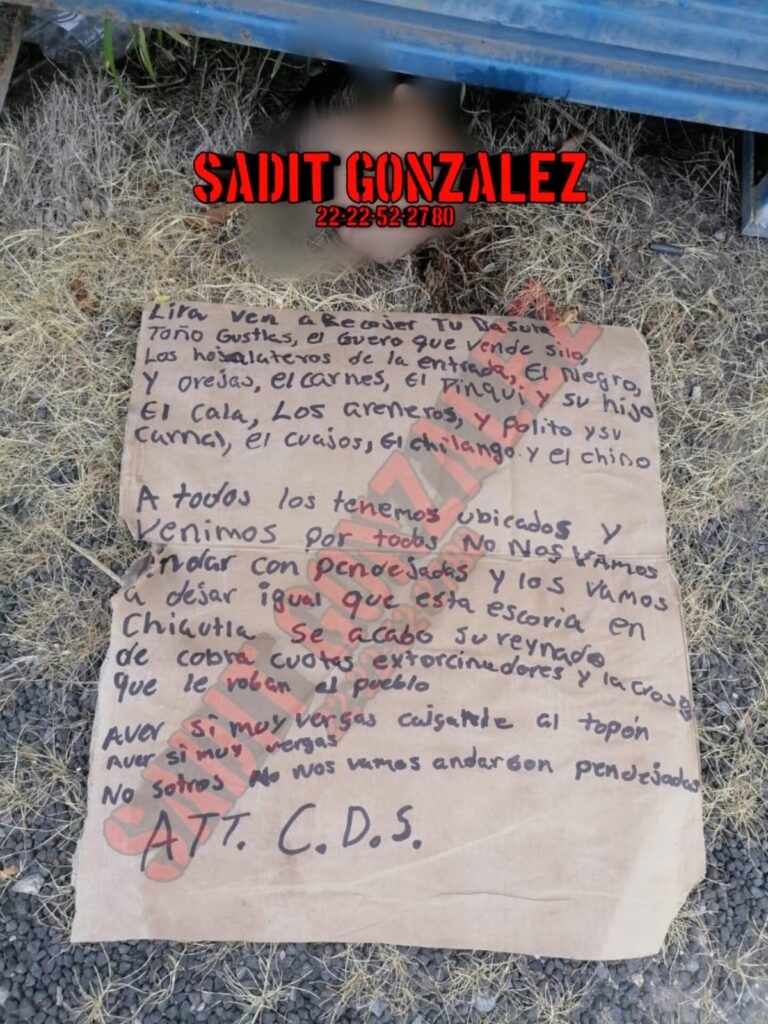 SADIT GONZALEZ
22-22-52-2780
Lira ven a Recojer Tu Basura
Toño Gustlas, el Guero que vende silo,
Los hojalateros de la entrada, El Negro,
Y orejas, el carnes, El Pinqui y su hijo
El Cala, Los areneros, y Polito y su
Carnal, el cuajos, El chilango y el chino
A todos los tenemos ubicados y
Venimos por todos No Nos Vamos
Andar con pendejadas y los vamos
a dejar igual que esta escoria en
Chiautla se acabo su reynado
de cobra cuotas extorcinadores y lacrosos
que le roban al pueblo
Aver si muy vergas caiganle al topón
Aver si muy vergas
No sotros No nos vamos andar con pendejadas
ATT. C.D.S.
SADIT GONZALEZ
22-22-52-2780